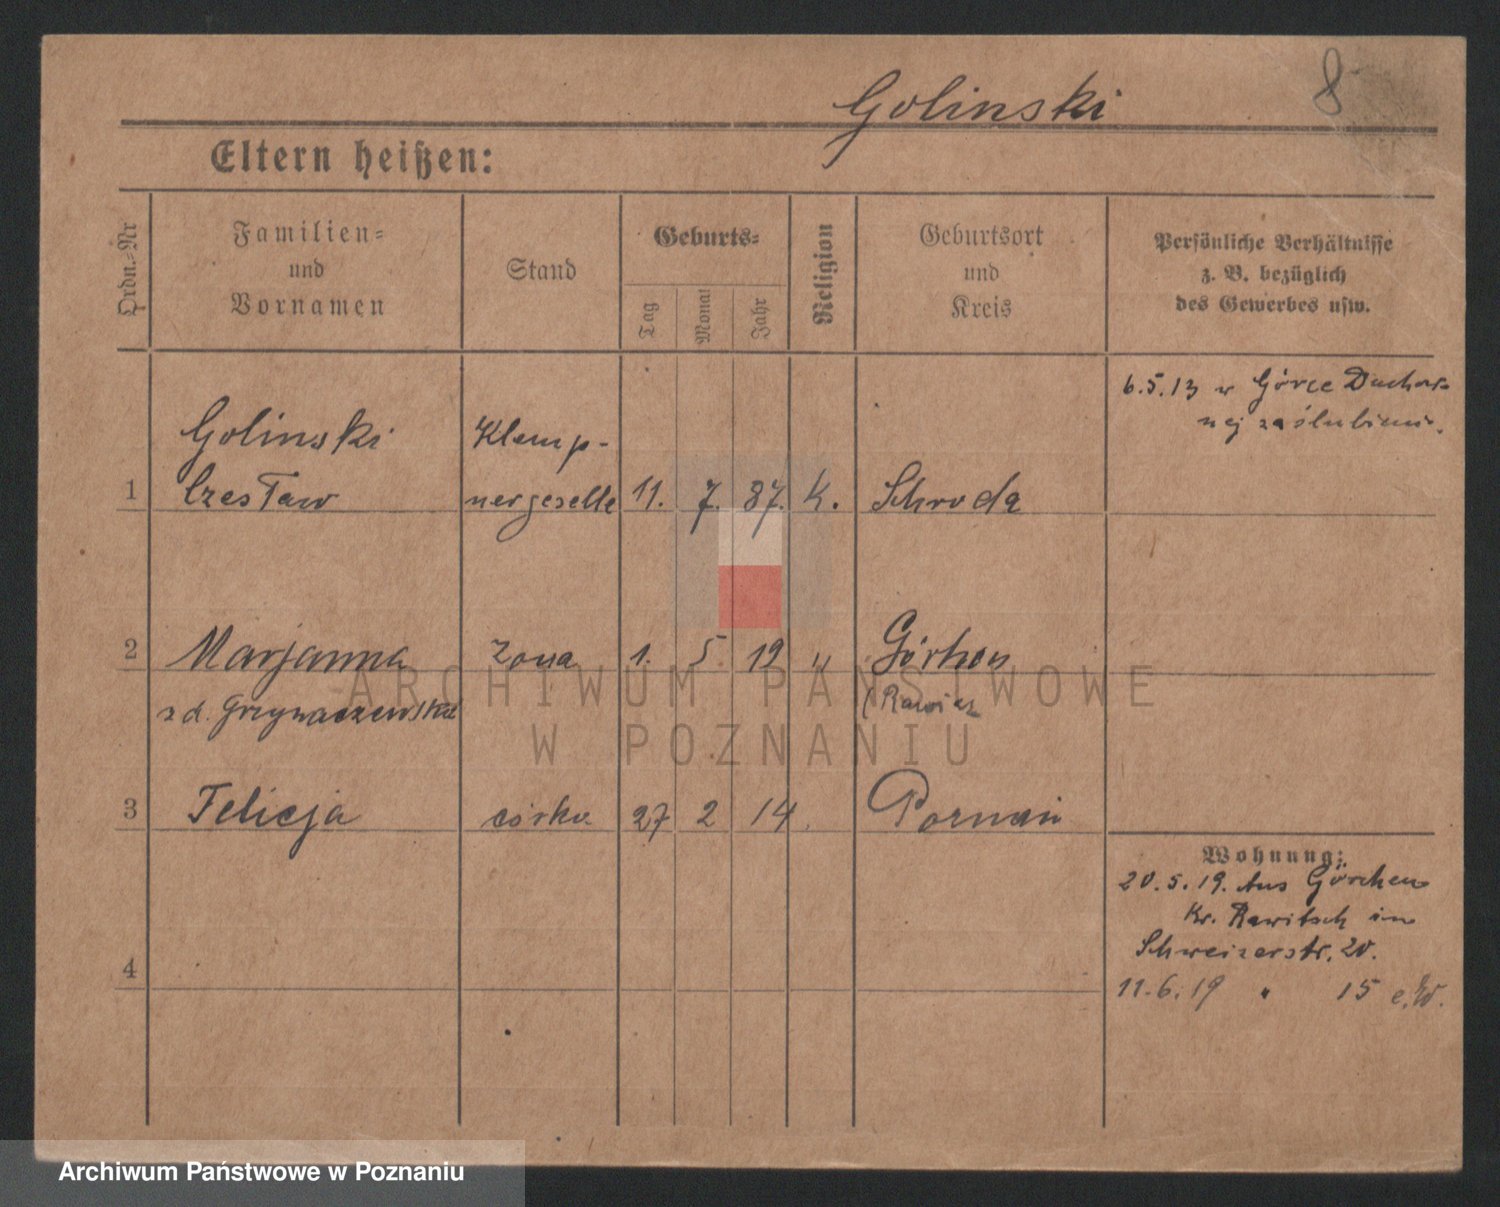 Golinski 8
Eltern heißen:
Ordn.-Nr
Familien-
und
Vornamen
Stand
Geburts-
Tag
Monat
Jahr
Religion
Geburtsort
und
Kreis
Persönliche Verhältnisse
z. B. bezüglich
des Gewerbes usw.
6.5.13 w Górce Duchow-
nej zaślubieni.
Golinski Klemp-
1 Czesław nergeselle 11. 7. 87. K. Schroda
2 Marjanna żona 1. 5. 19 " Görchen
z d. Grzywaczewska (Rawicz
3 Felicja córka 27 2 14 Poznań
Wohnung:
20.5.19. Aus Görchen
Kr. Rawitsch in
Schweizerstr. 20.
4
11.6.19 " 15 e.W.
ARCHIWUM PAŃSTWOWE
W POZNANIU
Archiwum Państwowe w Poznaniu